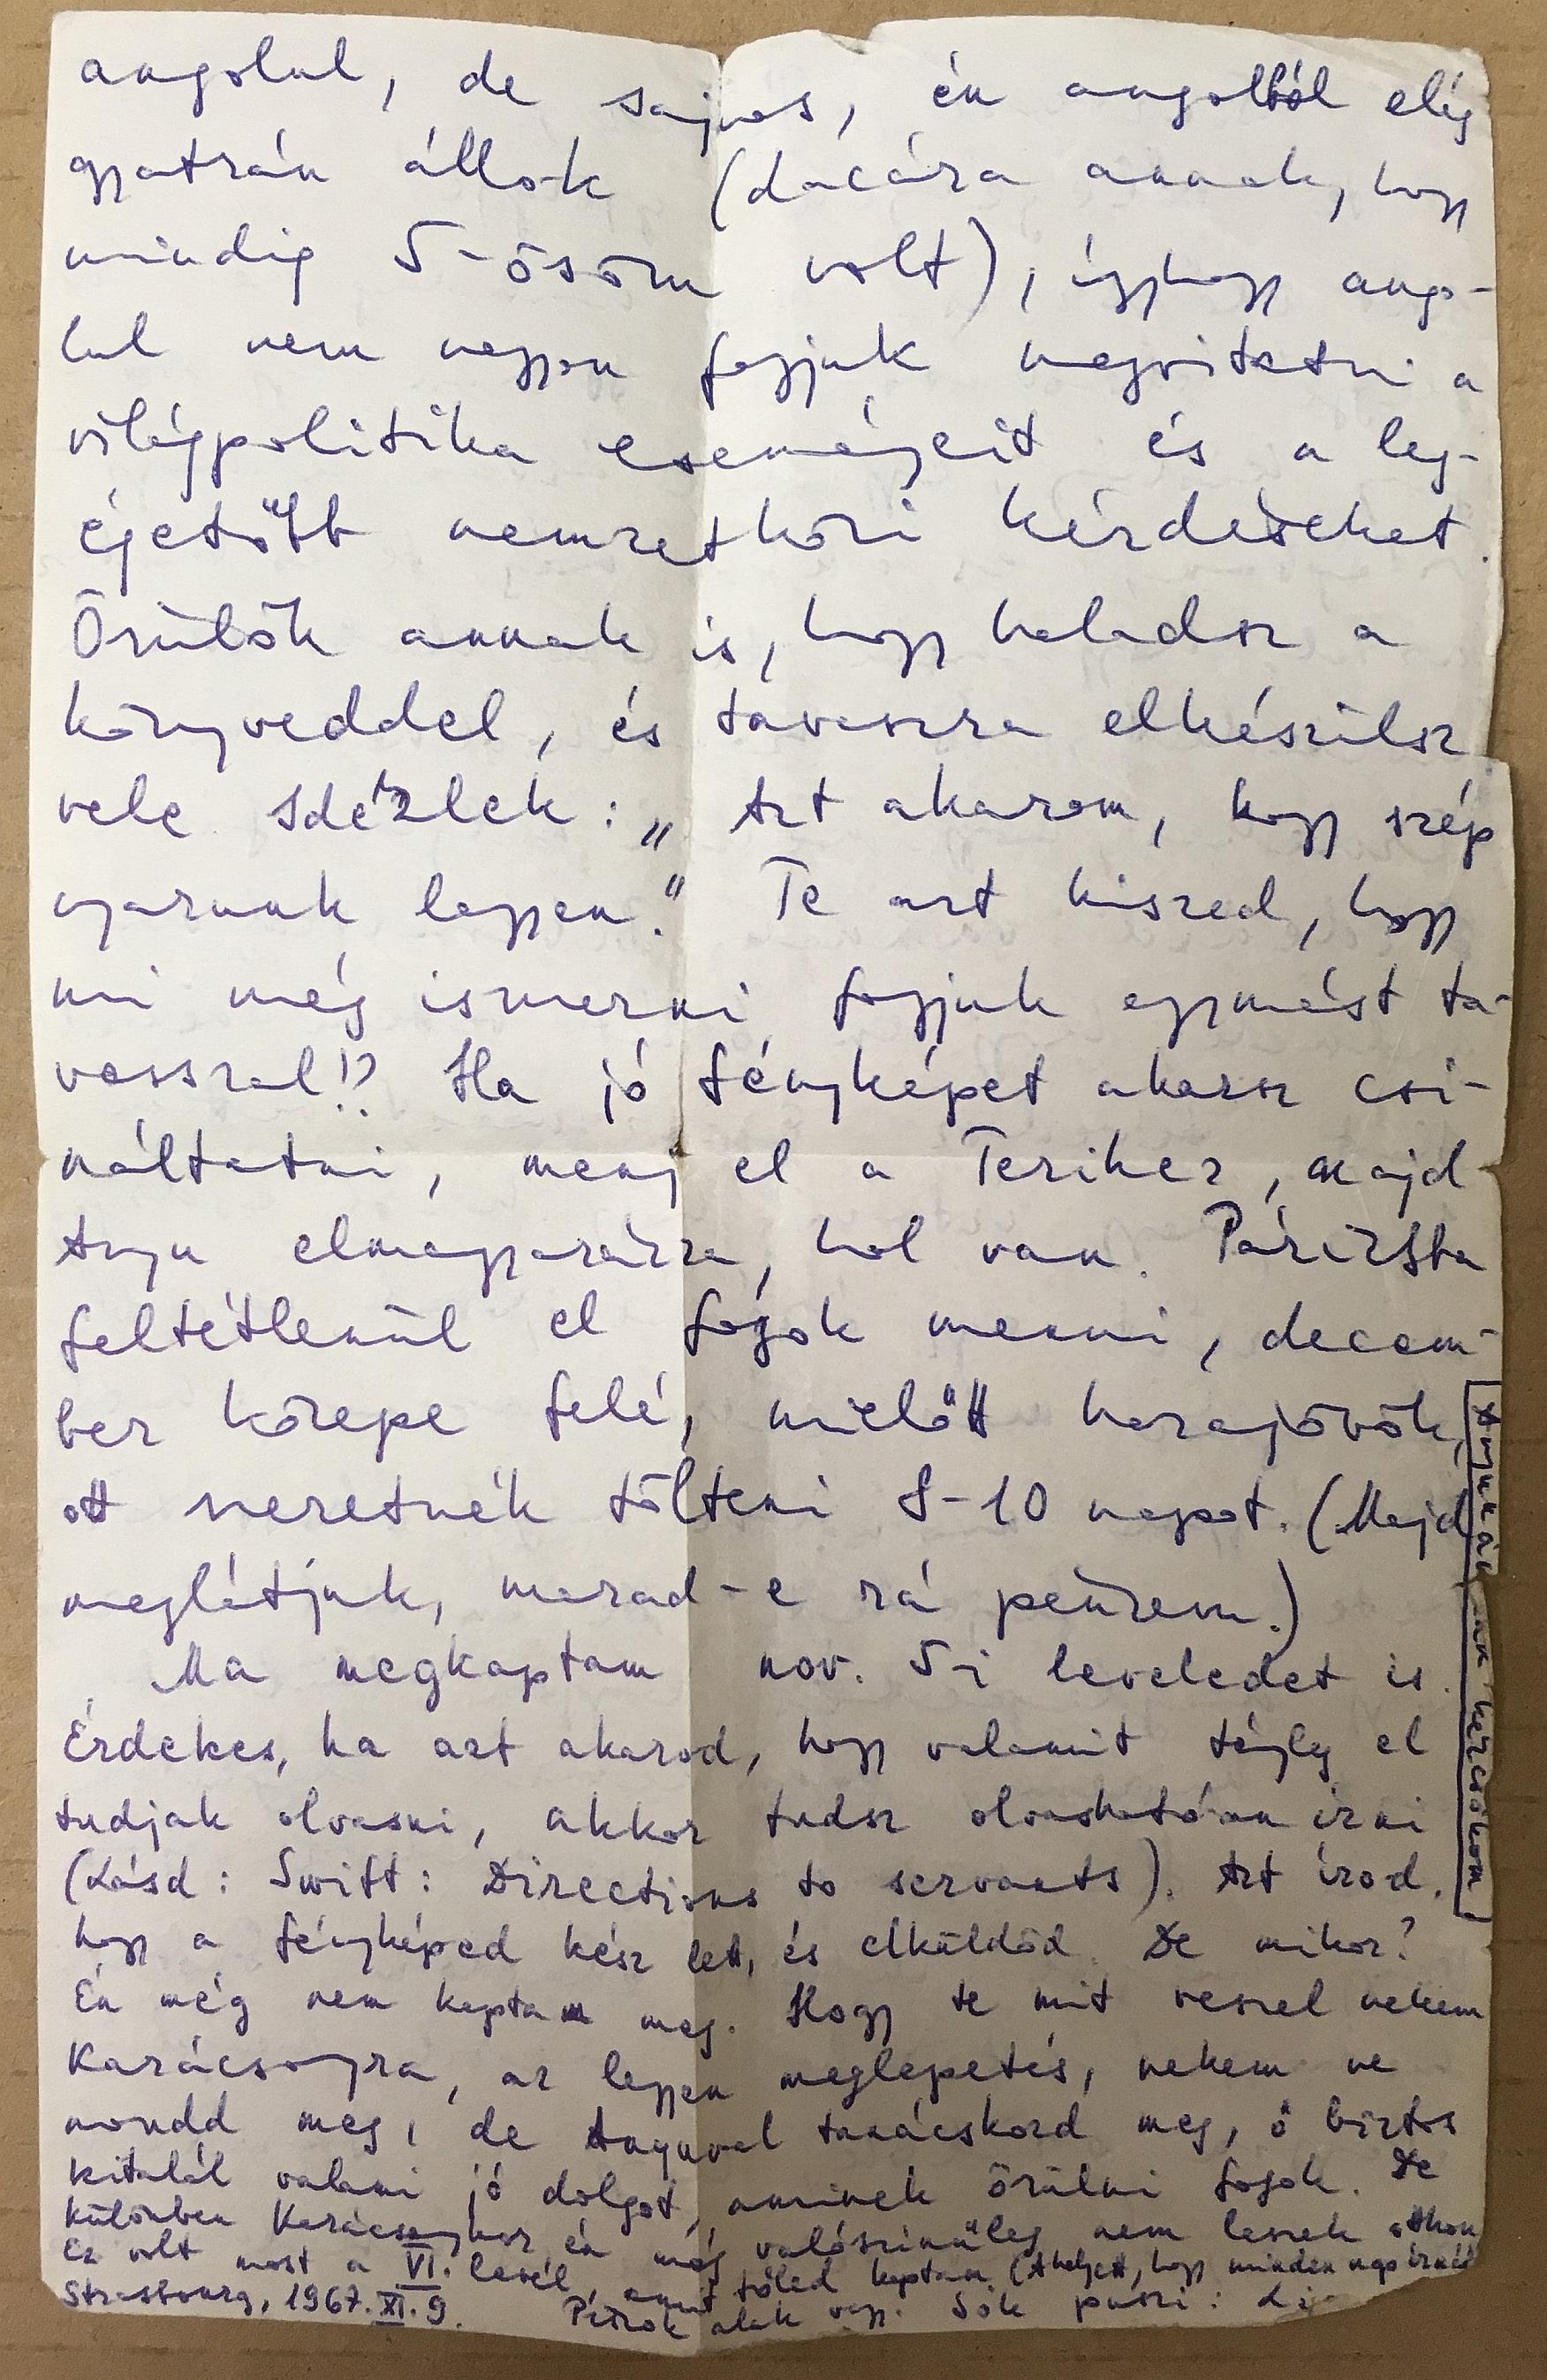 angolul, de sajnos, én angolból elég
gyatrán állok (dacára annak, hogy
mindig 5-ösöm volt), úgyhogy ango-
lul nem nagyon fogjuk megvitatni a
világpolitika eseményeit és a leg-
égetőbb nemzetközi kérdéseket.
Örülök annak is, hogy haladsz a
könyveddel, és tavaszra elkészülsz
vele. Idézlek: „Azt akarom, hogy szép
nyarunk legyen." Te azt hiszed, hogy
mi még ismerni fogjuk egymást ta-
vasszal!? Ha jó fényképet akarsz csi-
náltatni, menj el a Terihez, majd
Anyu elmagyarázza, hol van. Párizsba
feltétlenül el fogok menni, decem-
ber közepe felé, mielőtt hazajövök,
ott szeretnék tölteni 8-10 napot. (Majd
meglátjuk, marad-e rá pénzem.)
Ma megkaptam nov. 5-i leveledet is.
Érdekes, ha azt akarod, hogy valamit tényleg el
tudjak olvasni, akkor tudsz olvashatóan írni
(Lásd: Swift: Directions to servants). Azt írod,
hogy a fényképed kész lett, és elküldöd. De mikor?
Én még nem kaptam meg. Hogy te mit veszel nekem
Karácsonyra, az legyen meglepetés, nekem ne
mondd meg, de Anyuval tanácskozd meg, ő biztos
kitalál valami jó dolgot, aminek örülni fogok. De
különben Karácsonykor én még valószínűleg nem leszek otthon
Ez volt most a VI. levél, amit tőled kaptam. (Ahelyett, hogy minden nap írnál
Strasbourg, 1967. XI. 9. Piszok alak vagy. Sok puszi:
Anyukám kézcsókom